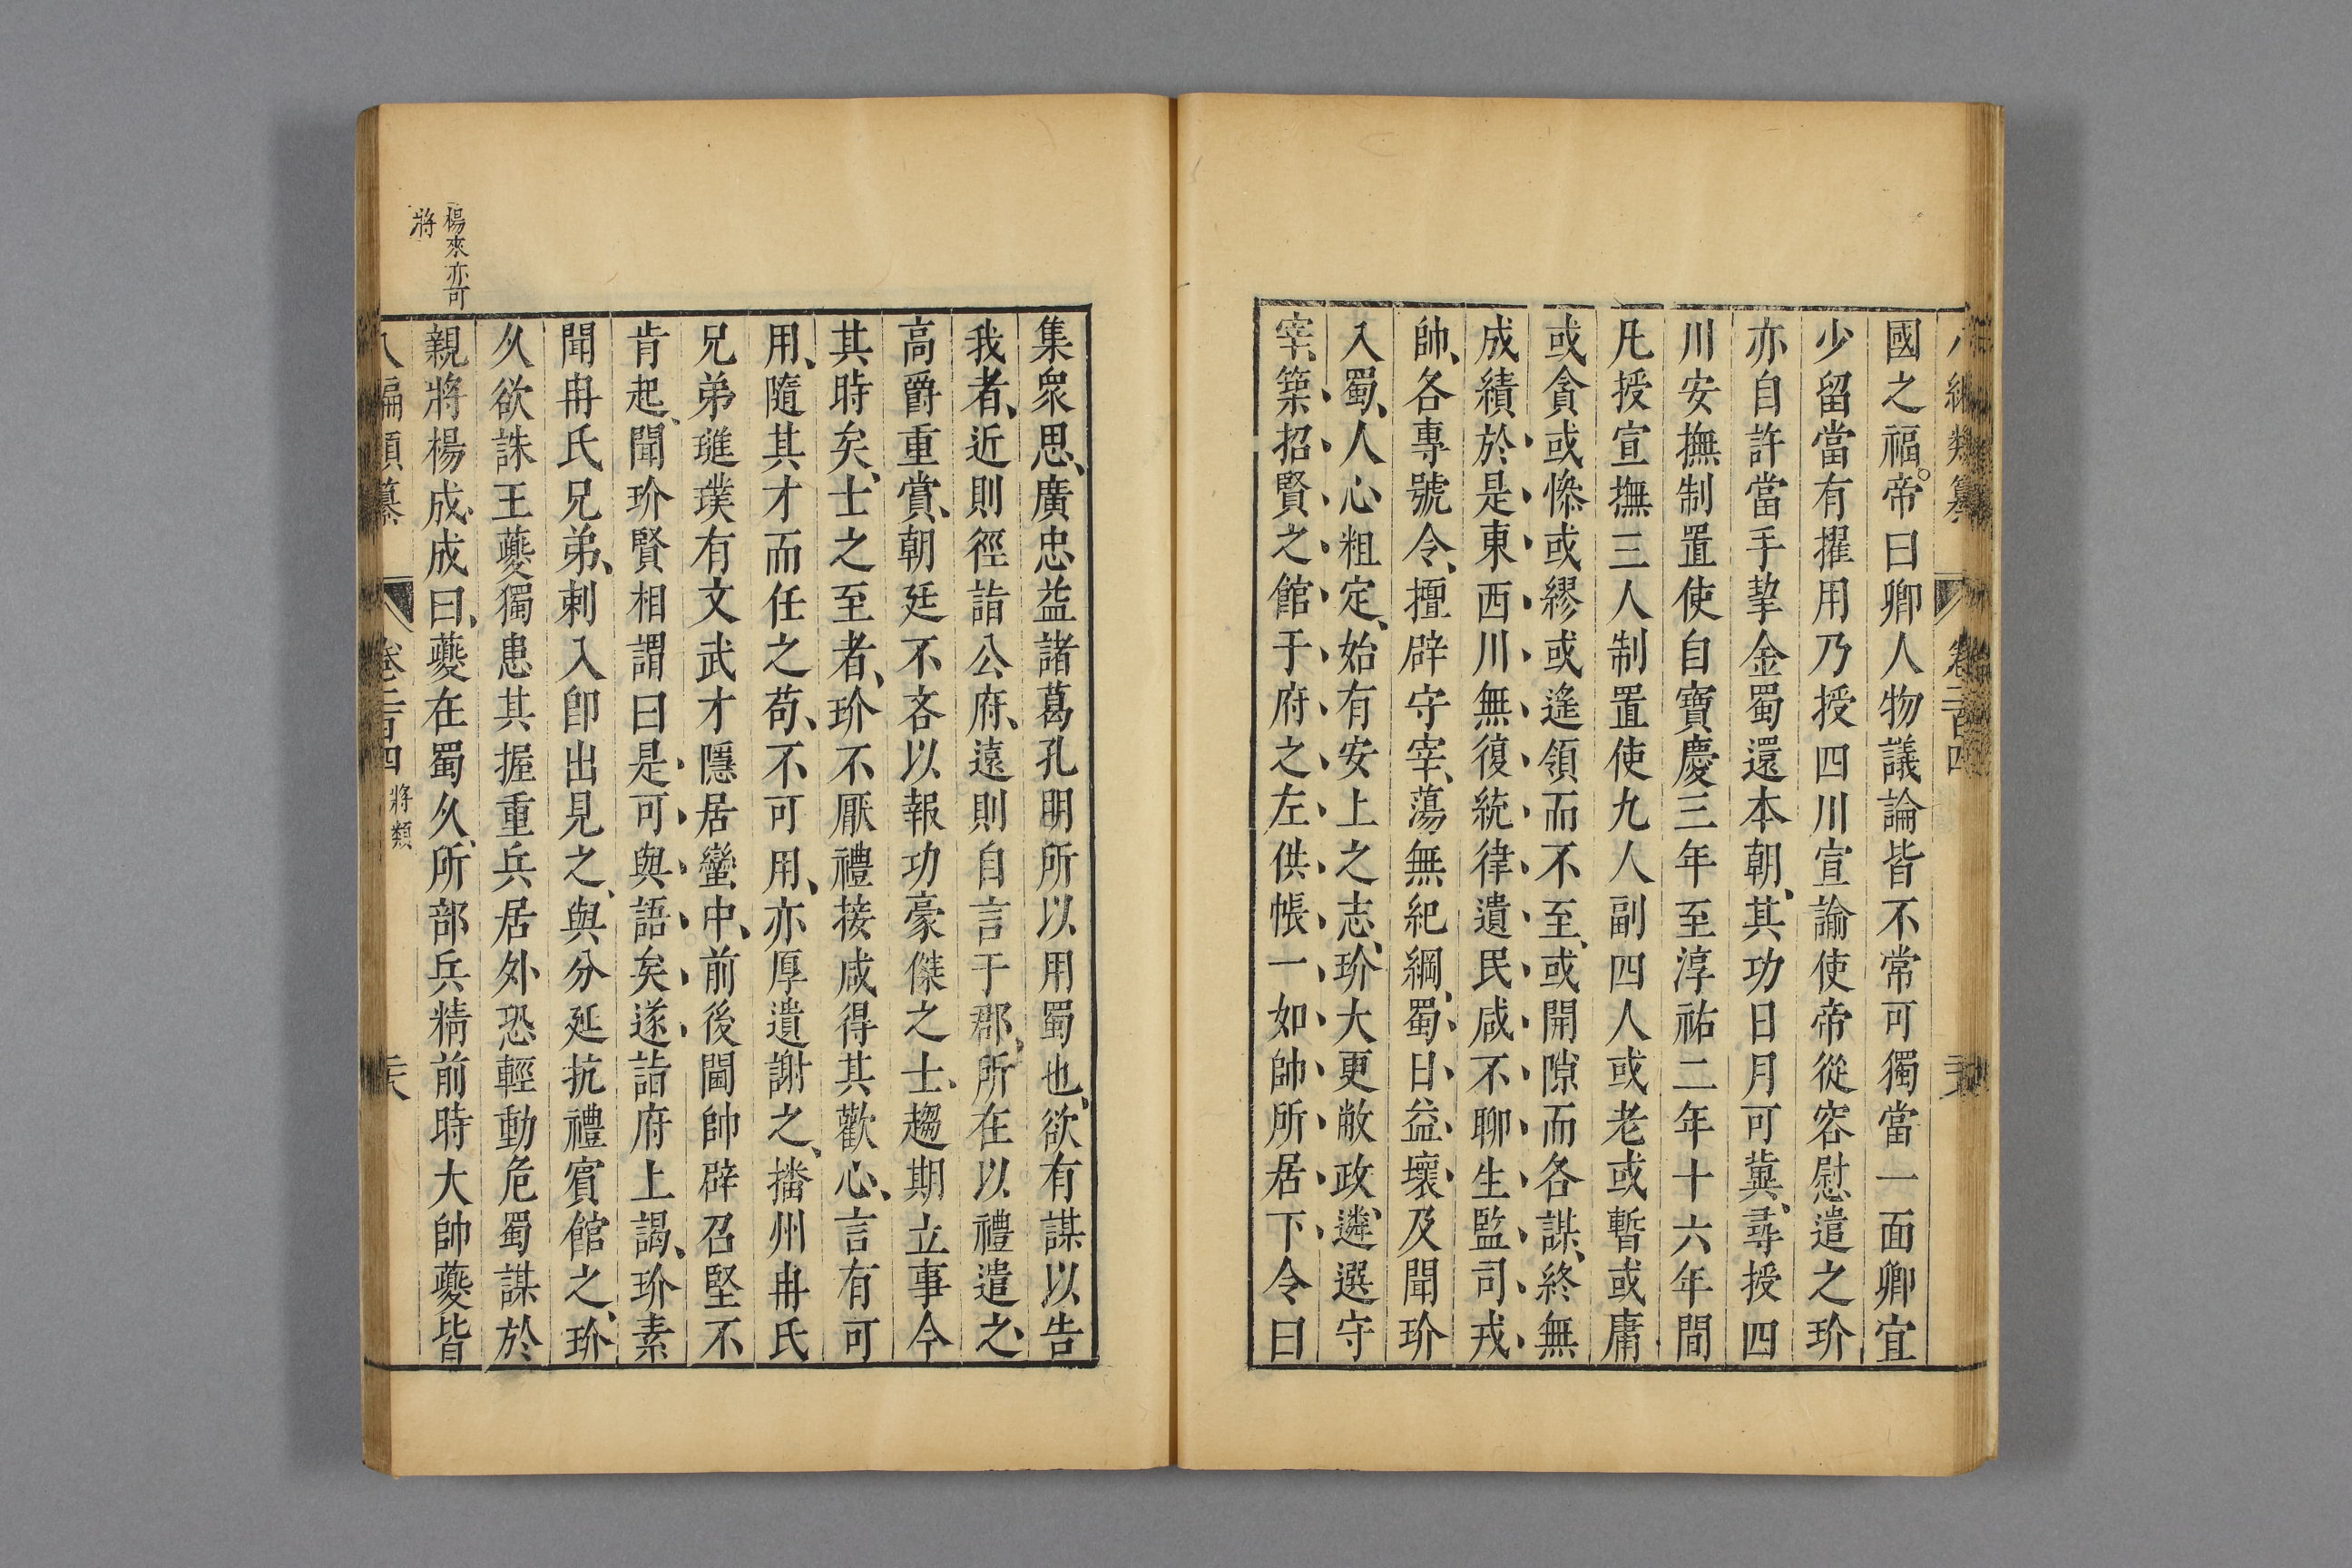 國之福帝曰卿人物議論皆不常可獨當一面卿宜
少留當有擢用乃授四川宣諭使帝從容慰遣之玠
亦自許當手挈金蜀還本朝其功日月可冀尋授四
川安撫制置使自寶慶三年至淳祐二年十六年間
凡授宣撫三人制置使九人副四人或老或暫或庸
或貪或慘或繆或遙領而不至或開隙而各謀終無
成績於是東西川無復統律遺民咸不聊生監司戎
帥各專號令擅辟守宰蕩無紀綱蜀日益壞及聞玠
入蜀人心粗定始有安上之志玠大更敝政遴選守
宰築招賢之館于府之左供帳一如帥所居下令曰
集衆思廣忠益諸葛孔明所以用蜀也欲有謀以告
我者近則徑詣公府遠則自言于郡所在以禮遣之
高爵重賞朝廷不吝以報功豪傑之士趨期立事今
其時矣士之至者玠不厭禮接咸得其歡心言有可
用隨其才而任之苟不可用亦厚遺謝之播州冉氏
兄弟璡璞有文武才隱居蠻中前後閫帥辟召堅不
肯起聞玠賢相謂曰是可與語矣遂詣府上謁玠素
聞冉氏兄弟刺入卽出見之與分延抗禮賓館之玠
久欲誅王夔獨患其握重兵居外恐輕動危蜀謀於
親將楊成成曰夔在蜀久所部兵精前時大帥夔皆
八編類纂 卷二百四 將類
楊來亦可
將